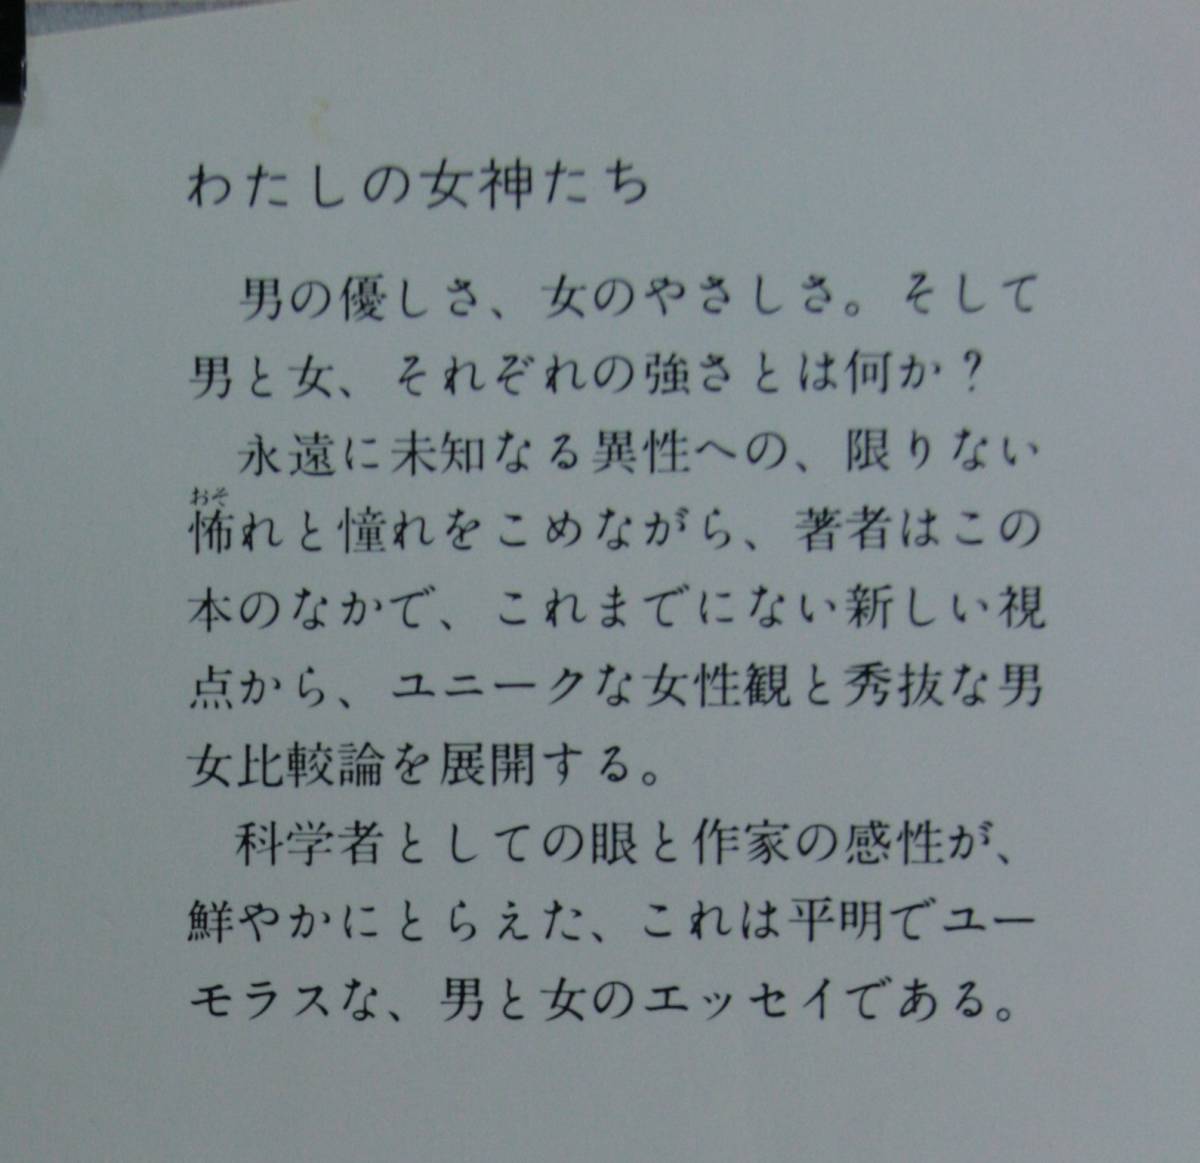 わたしの女神たち
男の優しさ、女のやさしさ。そして
男と女、それぞれの強さとは何か？
永遠に未知なる異性への、限りない
おそ
怖れと憧れをこめながら、著者はこの
本のなかで、これまでにない新しい視
点から、ユニークな女性観と秀抜な男
女比較論を展開する。
科学者としての眼と作家の感性が、
鮮やかにとらえた、これは平明でユー
モラスな、男と女のエッセイである。